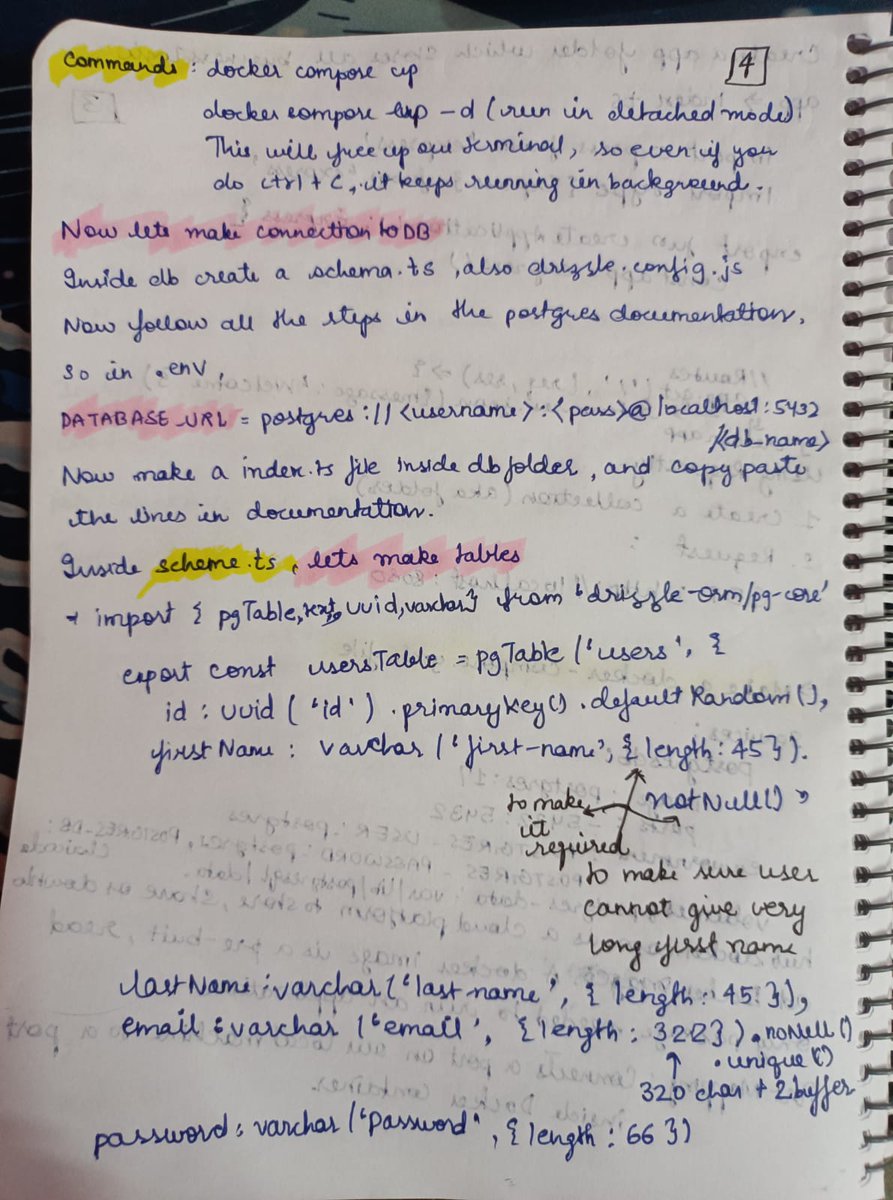 Commands : docker compose up
4
docker compose up -d (run in detached mode)
This will free up our terminal, so even if you
do ctrl + C, it keeps running in background.
Now lets make connection to DB
Inside db create a schema.ts, also drizzle.config.js
Now follow all the steps in the postgres documentation,
so in .env,
DATABASE_URL = postgres://<username>:<pass>@localhost:5432
/<db_name>
Now make a index.ts file inside db folder, and copy paste
the lines in documentation.
Inside scheme.ts, lets make tables
import { pgTable, text, uuid, varchar} from 'drizzle-orm/pg-core'
export const usersTable = pgTable ('users', {
id : uuid ('id') .primaryKey() .defaultRandom(),
firstName : varchar ('first-name', { length : 45 }).
notNull() ,
to make
it
required
to make sure user
cannot give very
long first name
lastName : varchar ('last-name', { length : 45 }),
email : varchar ('email', { length : 322}) .noNull()
.unique()
320 char + 2 buffer
password : varchar ('Password', { length : 66 })